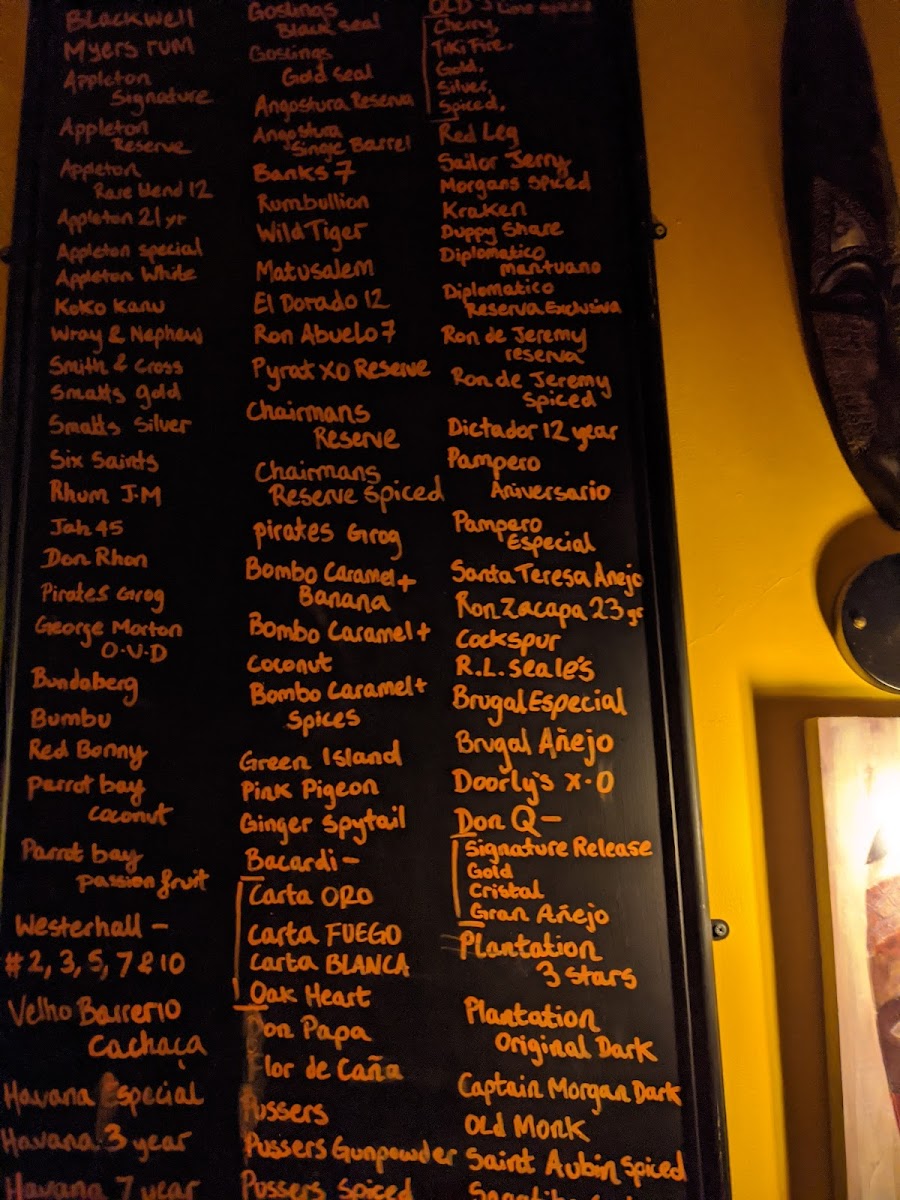 Blackwell
Myers rum
Appleton
Signature
Appleton
Reserve
Appleton
Rare blend 12
Appleton 21 yr
Appleton special
Appleton White
Koko Kanu
Wray & Nephew
Smith & Cross
Smatts gold
Smatts Silver
Six Saints
Rhum J.M
Jah 45
Don Rhon
Pirates Grog
George Morton
O.V.D
Bundaberg
Bumbu
Red Bonny
Parrot bay
coconut
Parrot bay
passionfruit
Westerhall -
#2, 3, 5, 7 & 10
Velho Barrerio
Cachaça
Havana Especial
Havana 3 year
Havana 7 year
Goslings
Black seal
Goslings
Gold seal
Angostura Reserva
Angostura
Single Barrel
Banks 7
Rumbullion
Wild Tiger
Matusalem
El Dorado 12
Ron Abuelo 7
Pyrat XO Reserve
Chairmans
Reserve
Chairmans
Reserve Spiced
Pirates Grog
Bombo Caramel +
Banana
Bombo Caramel +
Coconut
Bombo Caramel +
Spices
Green Island
Pink Pigeon
Ginger Spytail
Bacardi -
Carta ORO
Carta FUEGO
Carta BLANCA
Oak Heart
Don Papa
Flor de Caña
Pussers
Pussers Gunpowder
Pussers Spiced
OLD J
Cherry,
Tiki Fire,
Gold,
Silver,
Spiced,
Red Leg
Sailor Jerry
Morgans Spiced
Kraken
Duppy Share
Diplomatico
mantuano
Diplomatico
Reserva Exclusiva
Ron de Jeremy
reserva
Ron de Jeremy
Spiced
Dictador 12 year
Pampero
Aniversario
Pampero
Especial
Santa Teresa Anejo
Ron Zacapa 23 yr
Cockspur
R.L. Seale's
Brugal Especial
Brugal Añejo
Doorly's X.O
Don Q -
Signature Release
Gold
Cristal
Gran Añejo
Plantation
3 stars
Plantation
Original Dark
Captain Morgan Dark
OLD Monk
Saint Aubin Spiced